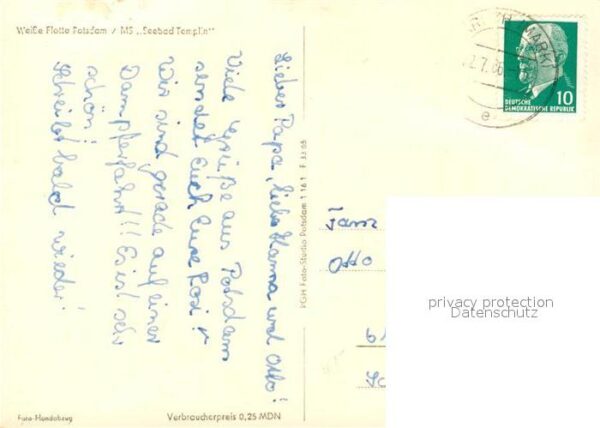 Weiße Flotte Potsdam / MS "Seebad Templin"
Lieber Papa, liebe Hanna und Otto!
Viele Grüße aus Potsdam
sendet Euch Eure Rosi!
Wir sind gerade auf einer
Dampferfahrt!!! Es ist sehr
schön!
Schreibt bald wieder!
Foto-Handabzug
Verbraucherpreis 0,25 MDN
PGH Foto-Studio Potsdam 1 16 1 F 33 65
MARK
2.7.66
e
DEUTSCHE
DEMOKRATISCHE REPUBLIK
10
Fam
Otto
privacy protection
Datenschutz